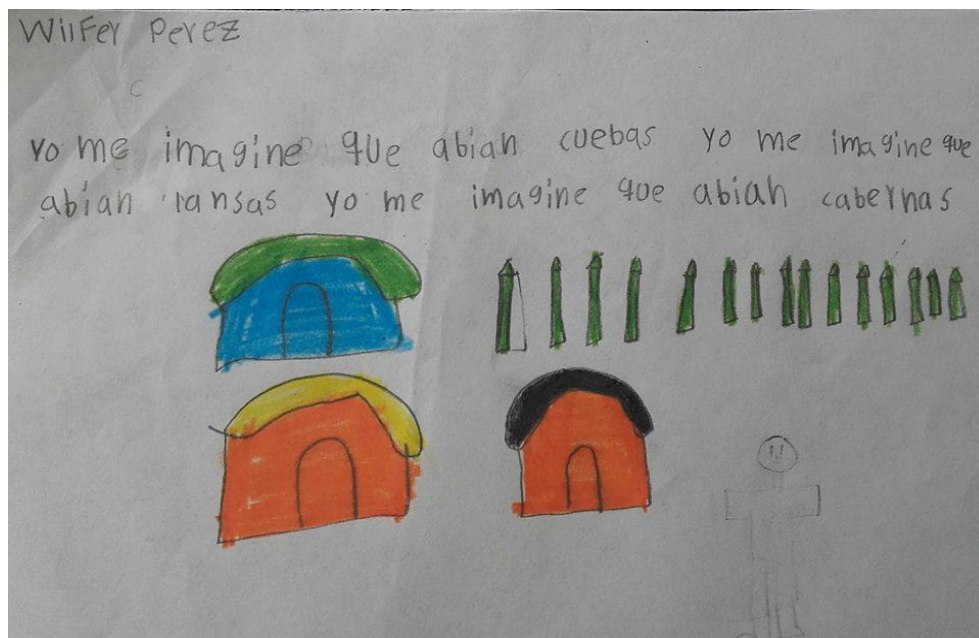 Wilfer Perez
c
yo me imagine que abian cuebas yo me imagine que
abian ransas yo me imagine que abian cabernas